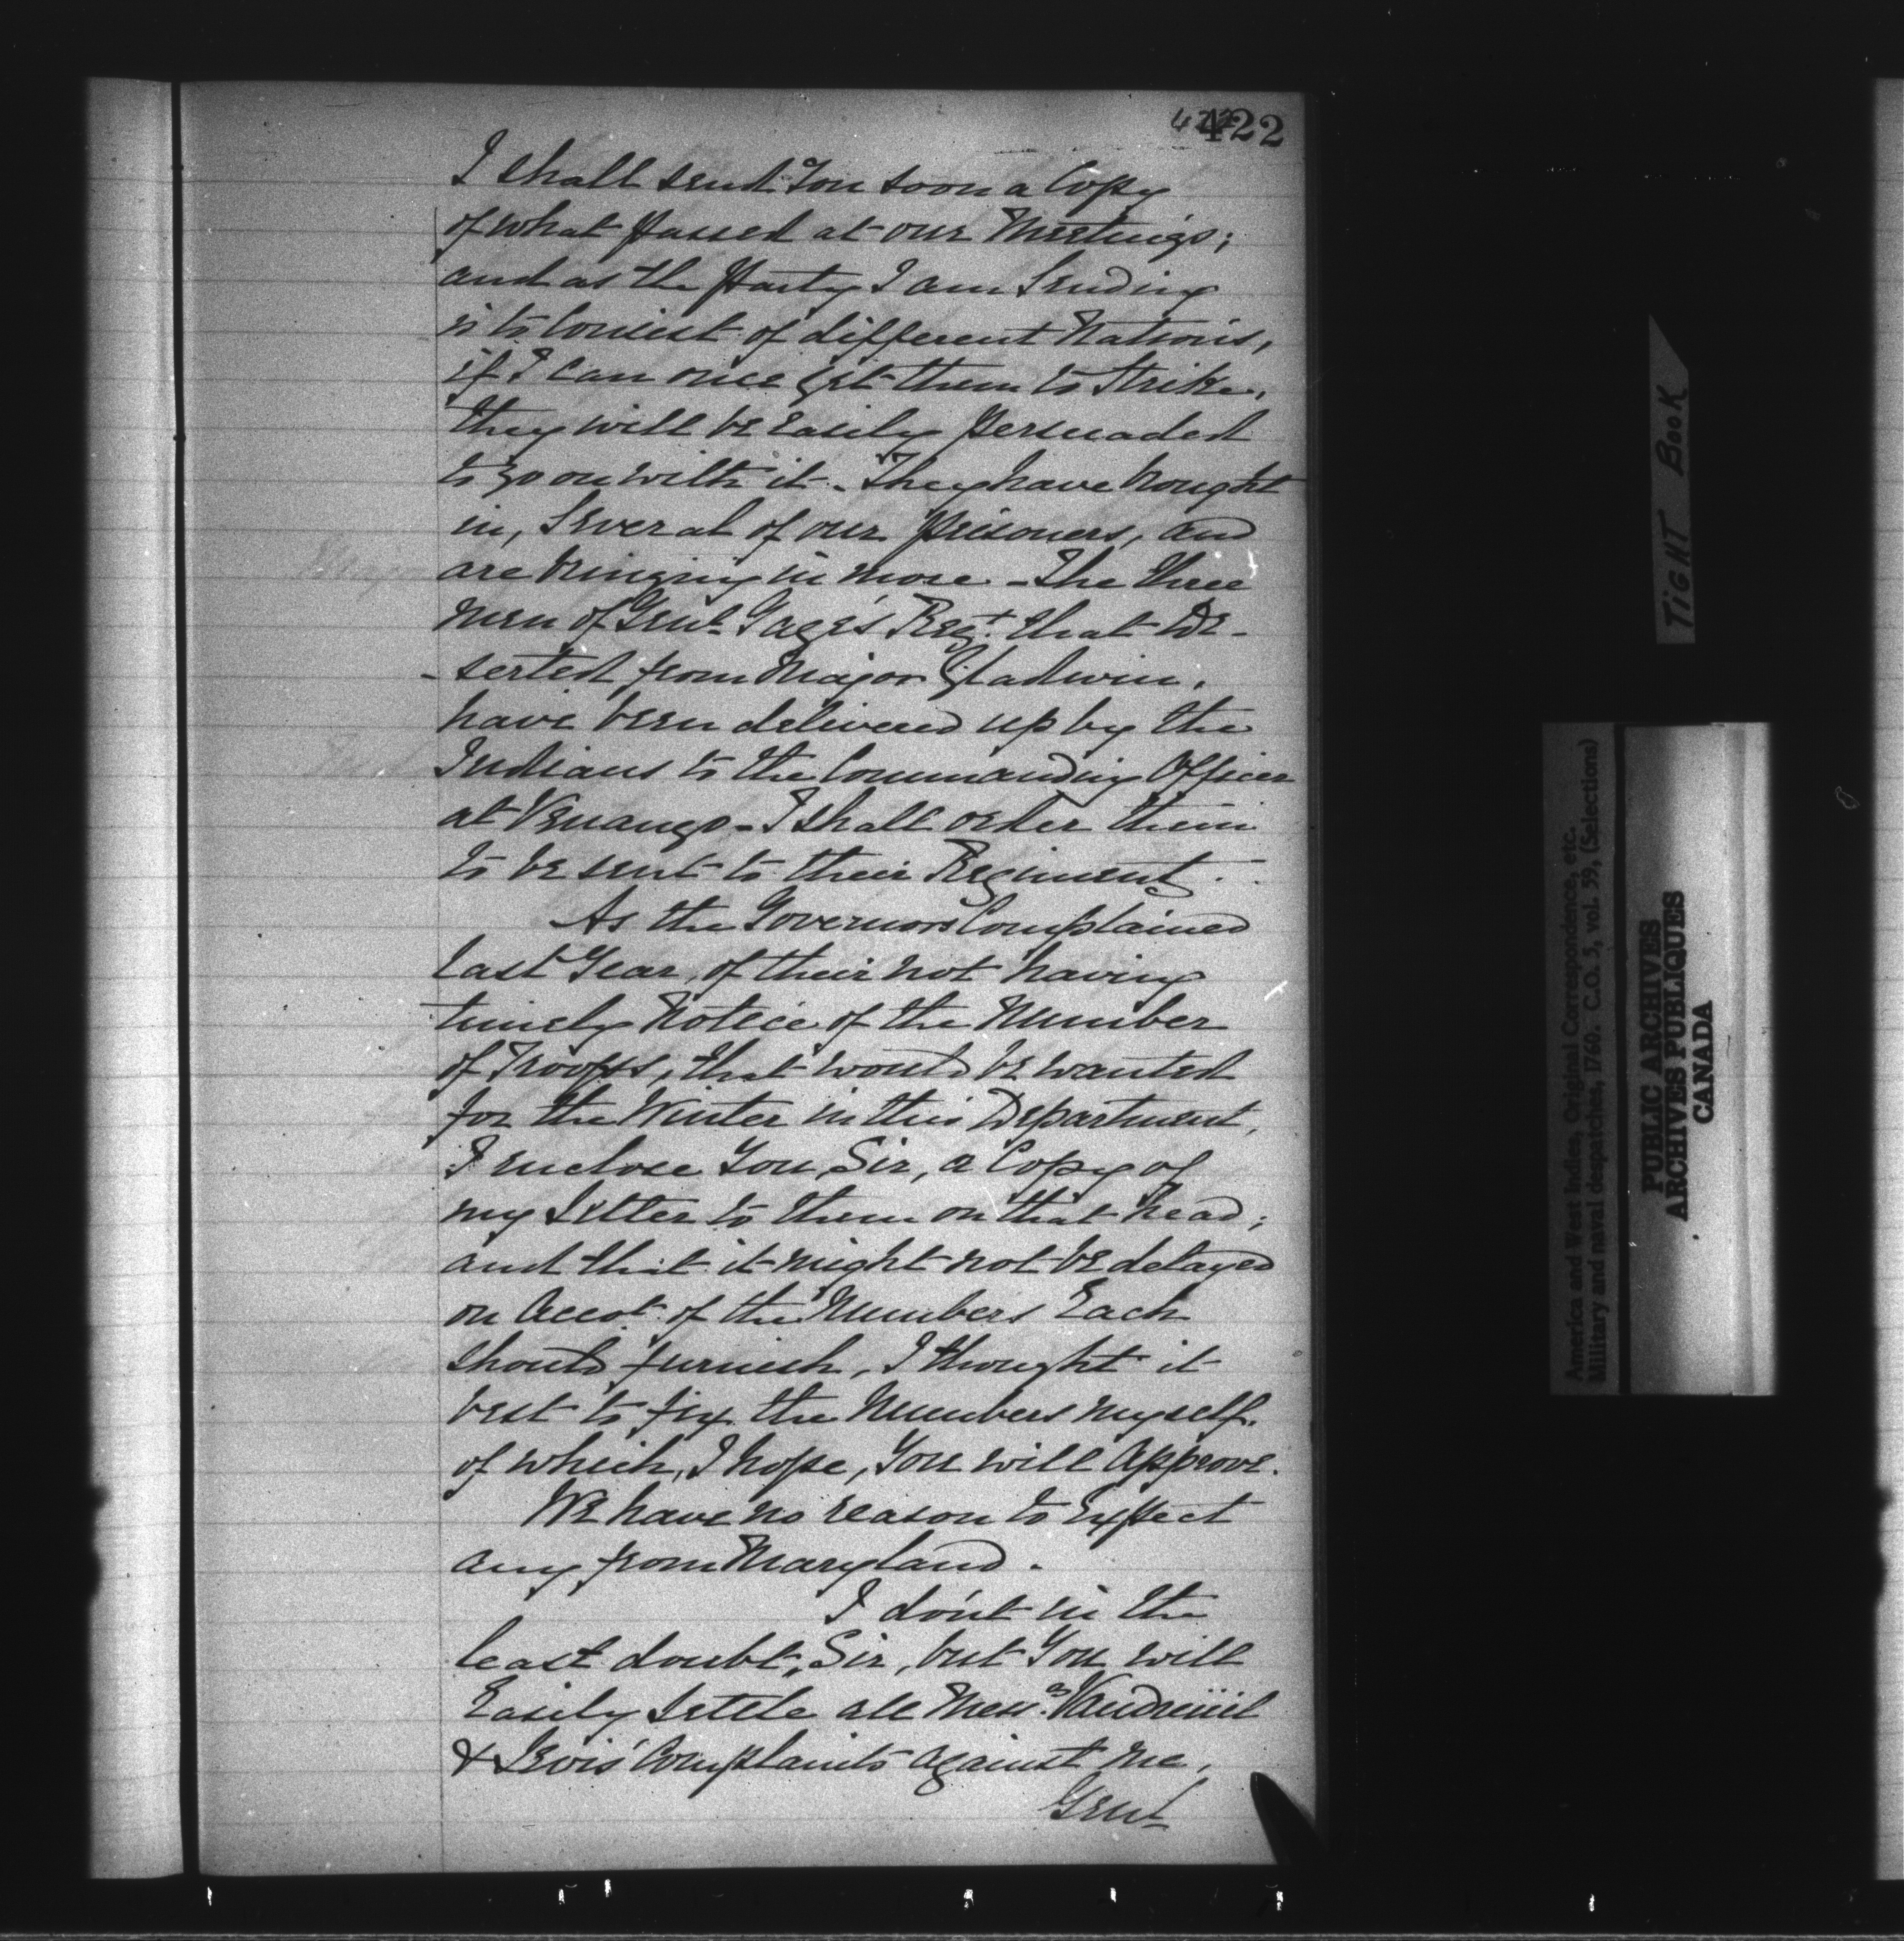 422
I shall send You soon a Copy
of what passed at our Meetings;
and as the Party I am Sending
is to Consist of different Nations,
if I Can once get them to Strike,
they will be Easily persuaded
to go on with it. They have brought
in, Several of our prisoners, and
are bringing in more - The three
men of Genl. Gage's Regt. that De-
-serted from Major Gladwin,
have been delivered up by the
Indians to the Commanding Officer
at Venango - I shall order them
to be sent to their Regiment.
As the Governors Complained
last Year, of their not having
timely Notice of the Number
of Troops, that would be wanted
for the Winter in this Department,
I enclose You, Sir, a Copy of
my Letter to them on that head;
and that it might not be delayed
on Accot. of the Numbers Each
should furnish, I thought it
best to fix the Numbers myself.
of which, I hope, You will Approve.
We have no reason to Expect
any from Maryland.
I don't in the
least doubt, Sir, but You will
Easily Settle all Messrs. Vaudreüil
& Levis' Complaints against me,
Genl
TIGHT BOOK
America and West Indies, Original Correspondence, etc.
Military and naval despatches, 1760. C.O. 5, vol. 59, (Selections)
PUBLIC ARCHIVES
ARCHIVES PUBLIQUES
CANADA